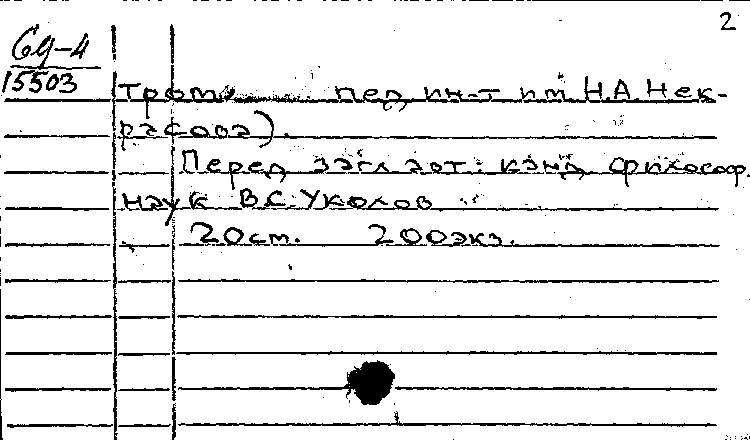 2
69-4
15503
пед ин-т им Н.А.Нек-
расова).
Перед загл авт: канд философ.
наук В.С.Уколов
20 ст. 200 экз.